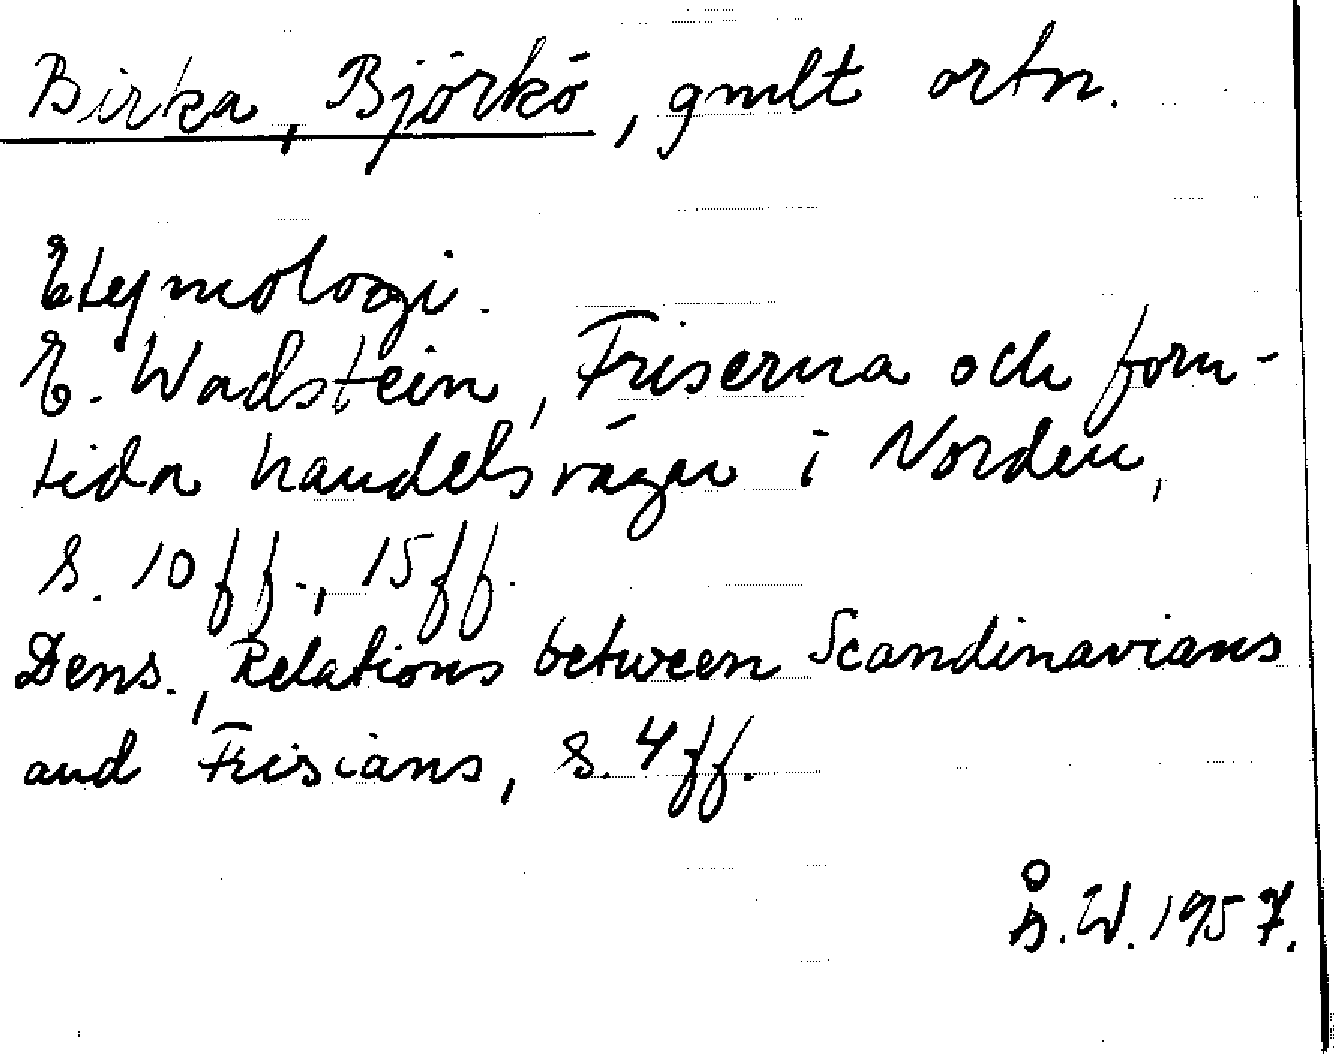 Birka, Björkö, gmlt ortn.
Etymologi.
E. Wadstein, Friserna och forn-
tida handelsvägar i Norden,
s. 10 ff., 15 ff.
Dens., Relations between Scandinavians
and Frisians, s. 4 ff.
Å. W. 1957.